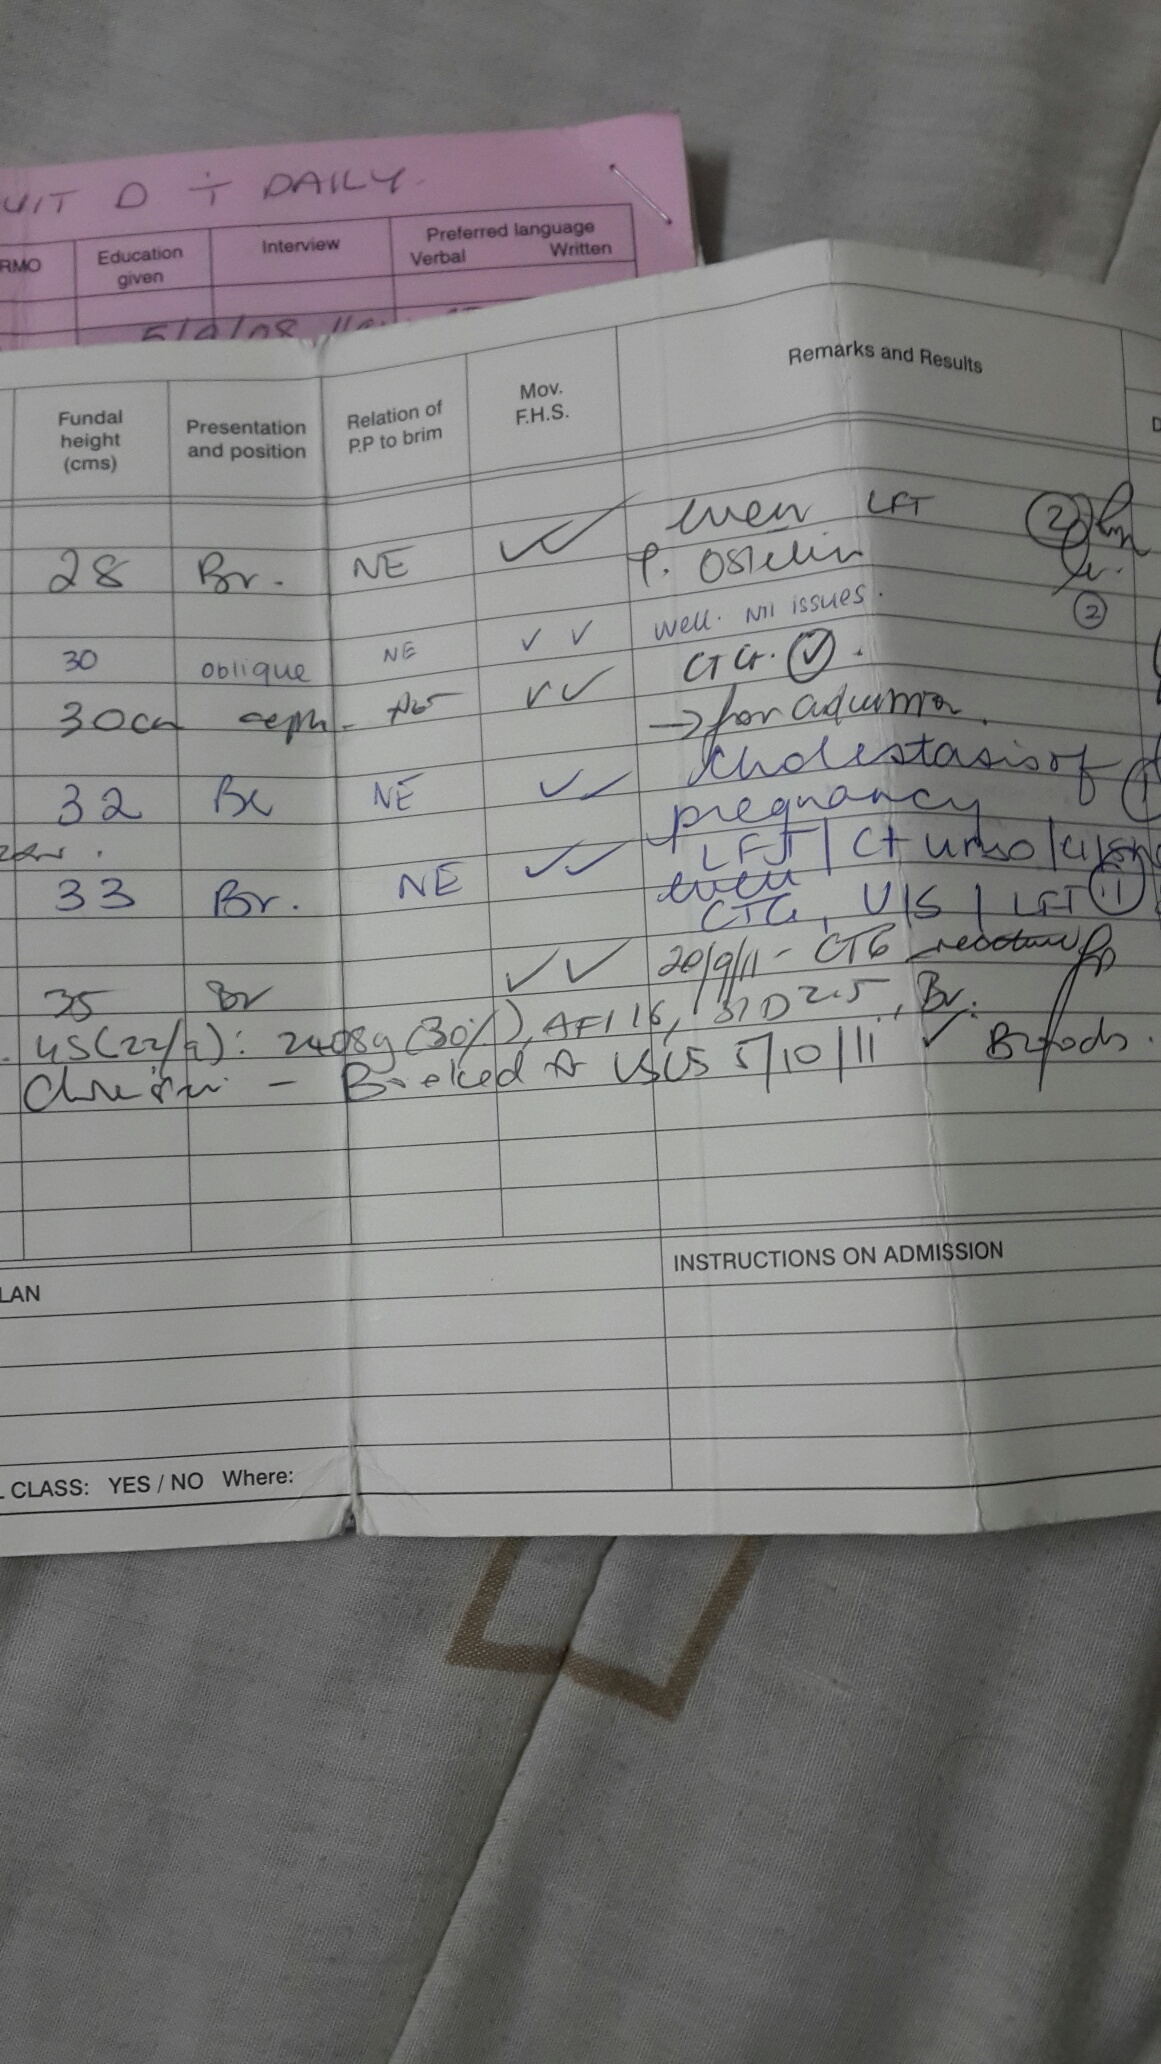 VIT D DAILY.
RMO
Education given
Interview
Preferred language
Verbal Written
5/9/08
Fundal height (cms)
Presentation and position
Relation of P.P to brim
Mov. F.H.S.
Remarks and Results
D
LFT
②
28 Br. NE ✓✓ Ostelin
②
30 oblique NE ✓ ✓ well. Nil issues.
CTG. ✓.
30cm ceph ✓✓
→ for
32 Br NE ✓✓ cholestasis of
pregnancy
LFT / Ct urso
33 Br. NE ✓✓
CTG, U/S / LFT
20/9/11 - CTG
35 Br ✓✓
US (22/9): 2408g (30%), AFI 16, S/D 2.5, Br.
Booked 5/10/11 ✓ Bloods.
LAN
INSTRUCTIONS ON ADMISSION
L CLASS: YES / NO Where: